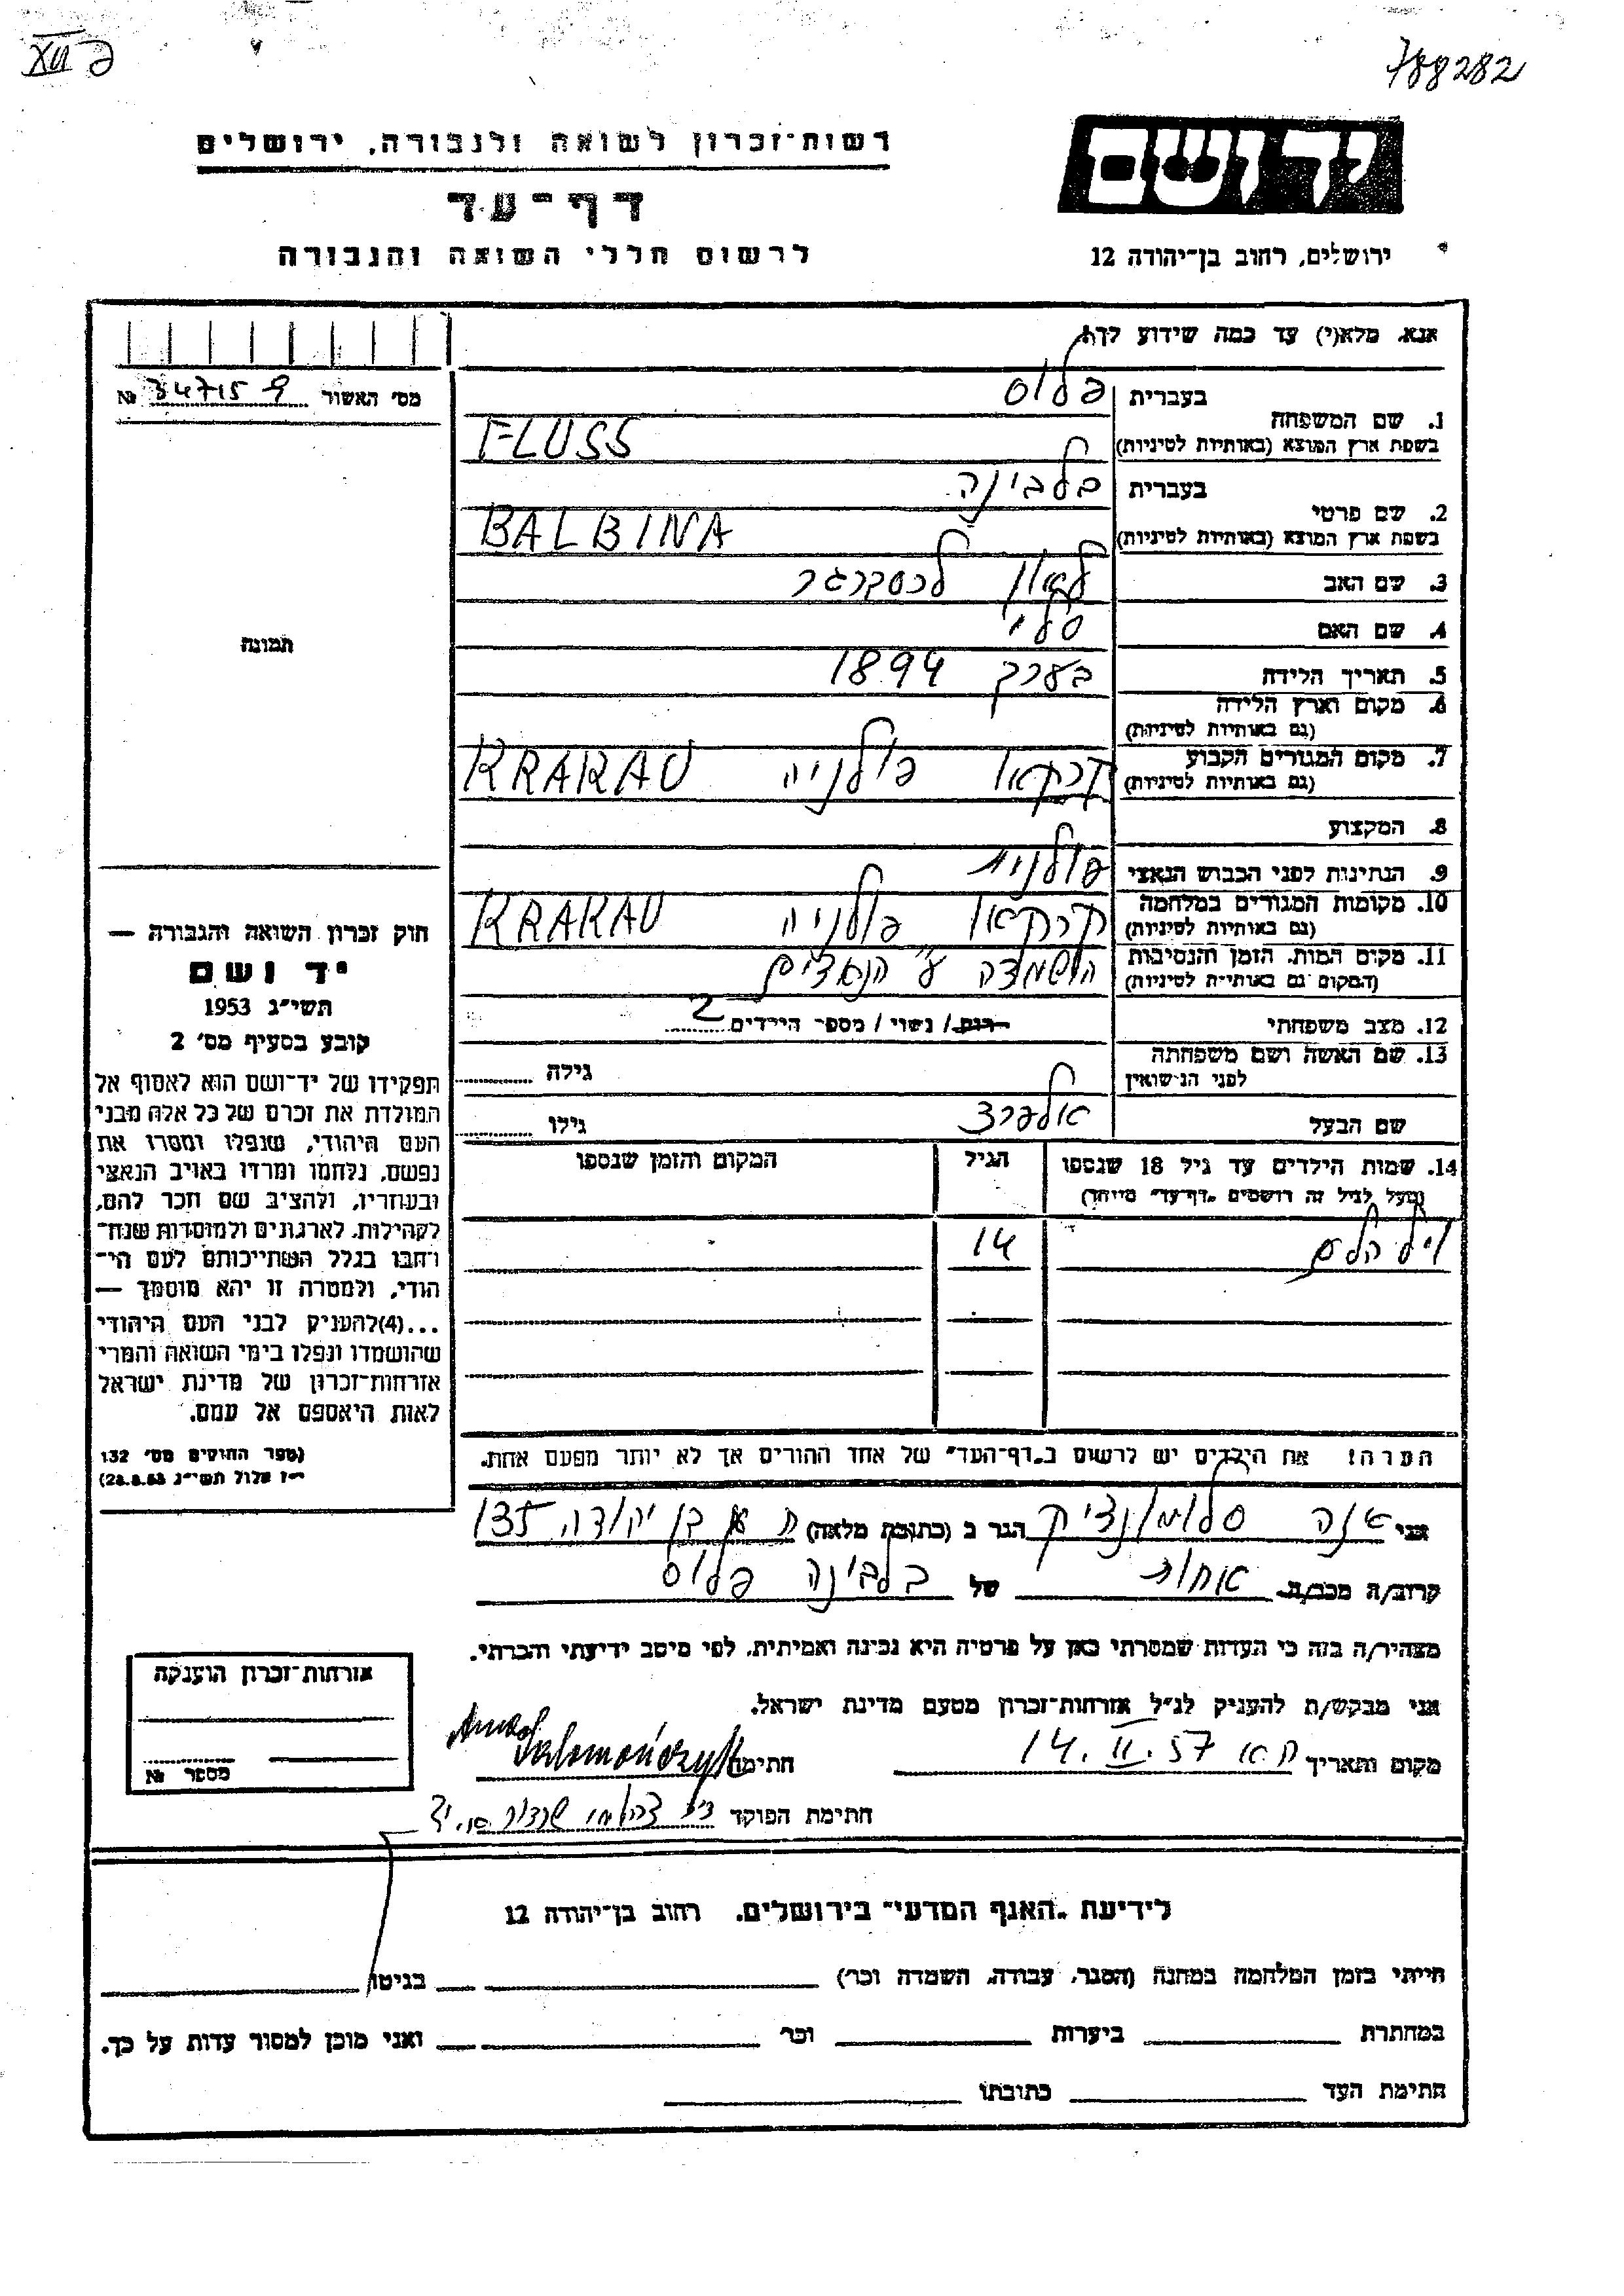 פ XVII
788282
יד ושם
רשות־זכרון לשואה ולגבורה, ירושלים
דף־עד
לרשום חללי השואה והגבורה
ירושלים, רחוב בן־יהודה 12
אנא, מלא(י) עד כמה שידוע לך
מס' האשור 34715 פ №
תמונה
1. שם המשפחה
בעברית פלוס
בשפת ארץ המוצא (באותיות לטיניות) FLUSS
2. שם פרטי
בעברית בלבינה
בשפת ארץ המוצא (באותיות לטיניות) BALBINA
3. שם האב לאון לכסברגר
4. שם האם סלי
5. תאריך הלידה בערך 1894
6. מקום וארץ הלידה
(גם באותיות לטיניות)
7. מקום המגורים הקבוע קרקאו פולניה KRAKAU
(גם באותיות לטיניות)
8. המקצוע
9. הנתינות לפני הכבוש הנאצי פולנית
10. מקומות המגורים במלחמה קרקאו פולניה KRAKAU
(גם באותיות לטיניות)
11. מקום המות, הזמן והנסיבות הושמדה ע"י הנאצים
(המקום גם באותיות לטיניות)
12. מצב משפחתי רוק / נשוי / מספר הילדים 2
13. שם האשה ושם משפחתה
לפני הנישואין
גילה
שם הבעל אלפרד
גילו
14. שמות הילדים עד גיל 18 שנספו
(מעל לגיל זה רושמים "דף־עד" מיוחד)
הגיל
המקום והזמן שנספו
14
הערה! את הילדים יש לרשום ב"דף־העד" של אחד ההורים אך לא יותר מפעם אחת.
חוק זכרון השואה והגבורה —
יד ושם
תשי"ג 1953
קובע בסעיף מס' 2
תפקידו של יד־ושם הוא לאסוף אל
המולדת את זכרם של כל אלה מבני
העם היהודי, שנפלו ומסרו את
נפשם, נלחמו ומרדו באויב הנאצי
ובעוזריו, ולהציב שם וזכר להם,
לקהילות, לארגונים ולמוסדות שנח־
רחבו בגלל השתייכותם לעם הי־
הודי, ולמטרה זו יהא מוסמך —
...(4) להעניק לבני העם היהודי
שהושמדו ונפלו בימי השואה והמרי
אזרחות־זכרון של מדינת ישראל
לאות היאספם אל עמם.
(ספר החוקים מס' 132
י"ז אלול תשי"ג 28.8.53)
אני אנה סלומונציק הגר ב (כתובת מלאה) ת א בן יהודה 135
קרוב/ה מכב/ה אחות של בלבינה פלוס
מצהיר/ה בזה כי העדות שמסרתי כאן על פרטיה היא נכונה ואמיתית, לפי מיטב ידיעתי והכרתי.
אני מבקש/ת להעניק לנ"ל אזרחות־זכרון מטעם מדינת ישראל.
מקום ותאריך ת א 14. II. 57 חתימה Anna Salomończyk
חתימת הפוקד
אזרחות־זכרון הוענקה
מספר №
לידיעת "האגף המדעי" בירושלים, רחוב בן־יהודה 12
הייתי בזמן המלחמה במחנה (הסגר, עבודה, השמדה וכר') בגיטו
במחתרת ביערות וכר' ואני מוכן למסור עדות על כך.
חתימת העד כתובתו